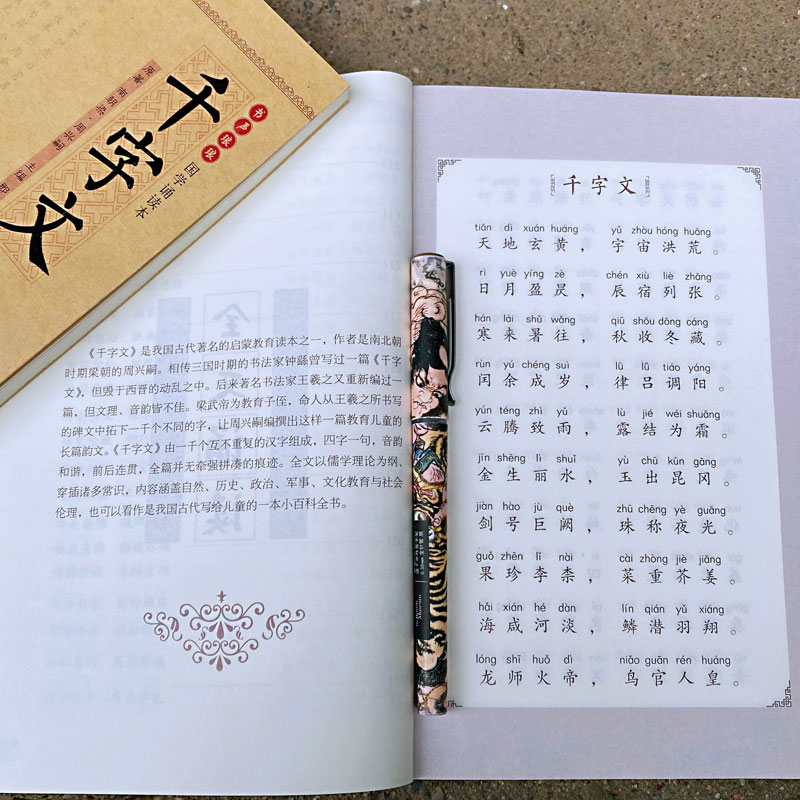 书声琅琅
千字文
国学诵读本
原著 南朝梁·周兴嗣 主编
《千字文》是我国古代著名的启蒙教育读本之一，作者是南北朝
时期梁朝的周兴嗣。相传三国时期的书法家钟繇曾写过一篇《千字
文》，但毁于西晋的动乱之中。后来著名书法家王羲之又重新编过一
篇，但文理、音韵皆不佳。梁武帝为教育子侄，命人从王羲之所书写
的碑文中拓下一千个不同的字，让周兴嗣编撰出这样一篇教育儿童的
长篇韵文。《千字文》由一千个互不重复的汉字组成，四字一句，音韵
和谐，前后连贯，全篇并无牵强拼凑的痕迹。全文以儒学理论为纲、
穿插诸多常识，内容涵盖自然、历史、政治、军事、文化教育与社会
伦理，也可以看作是我国古代写给儿童的一本小百科全书。
千字文
tiān dì xuán huáng yǔ zhòu hóng huāng
天地玄黄，宇宙洪荒。
rì yuè yíng zè chén xiù liè zhāng
日月盈昃，辰宿列张。
hán lái shǔ wǎng qiū shōu dōng cáng
寒来暑往，秋收冬藏。
rùn yú chéng suì lǜ lǚ tiáo yáng
闰余成岁，律吕调阳。
yún téng zhì yǔ lù jié wéi shuāng
云腾致雨，露结为霜。
jīn shēng lì shuǐ yù chū kūn gāng
金生丽水，玉出昆冈。
jiàn hào jù què zhū chēng yè guāng
剑号巨阙，珠称夜光。
guǒ zhēn lǐ nài cài zhòng jiè jiāng
果珍李柰，菜重芥姜。
hǎi xián hé dàn lín qián yǔ xiáng
海咸河淡，鳞潜羽翔。
lóng shī huǒ dì niǎo guān rén huáng
龙师火帝，鸟官人皇。